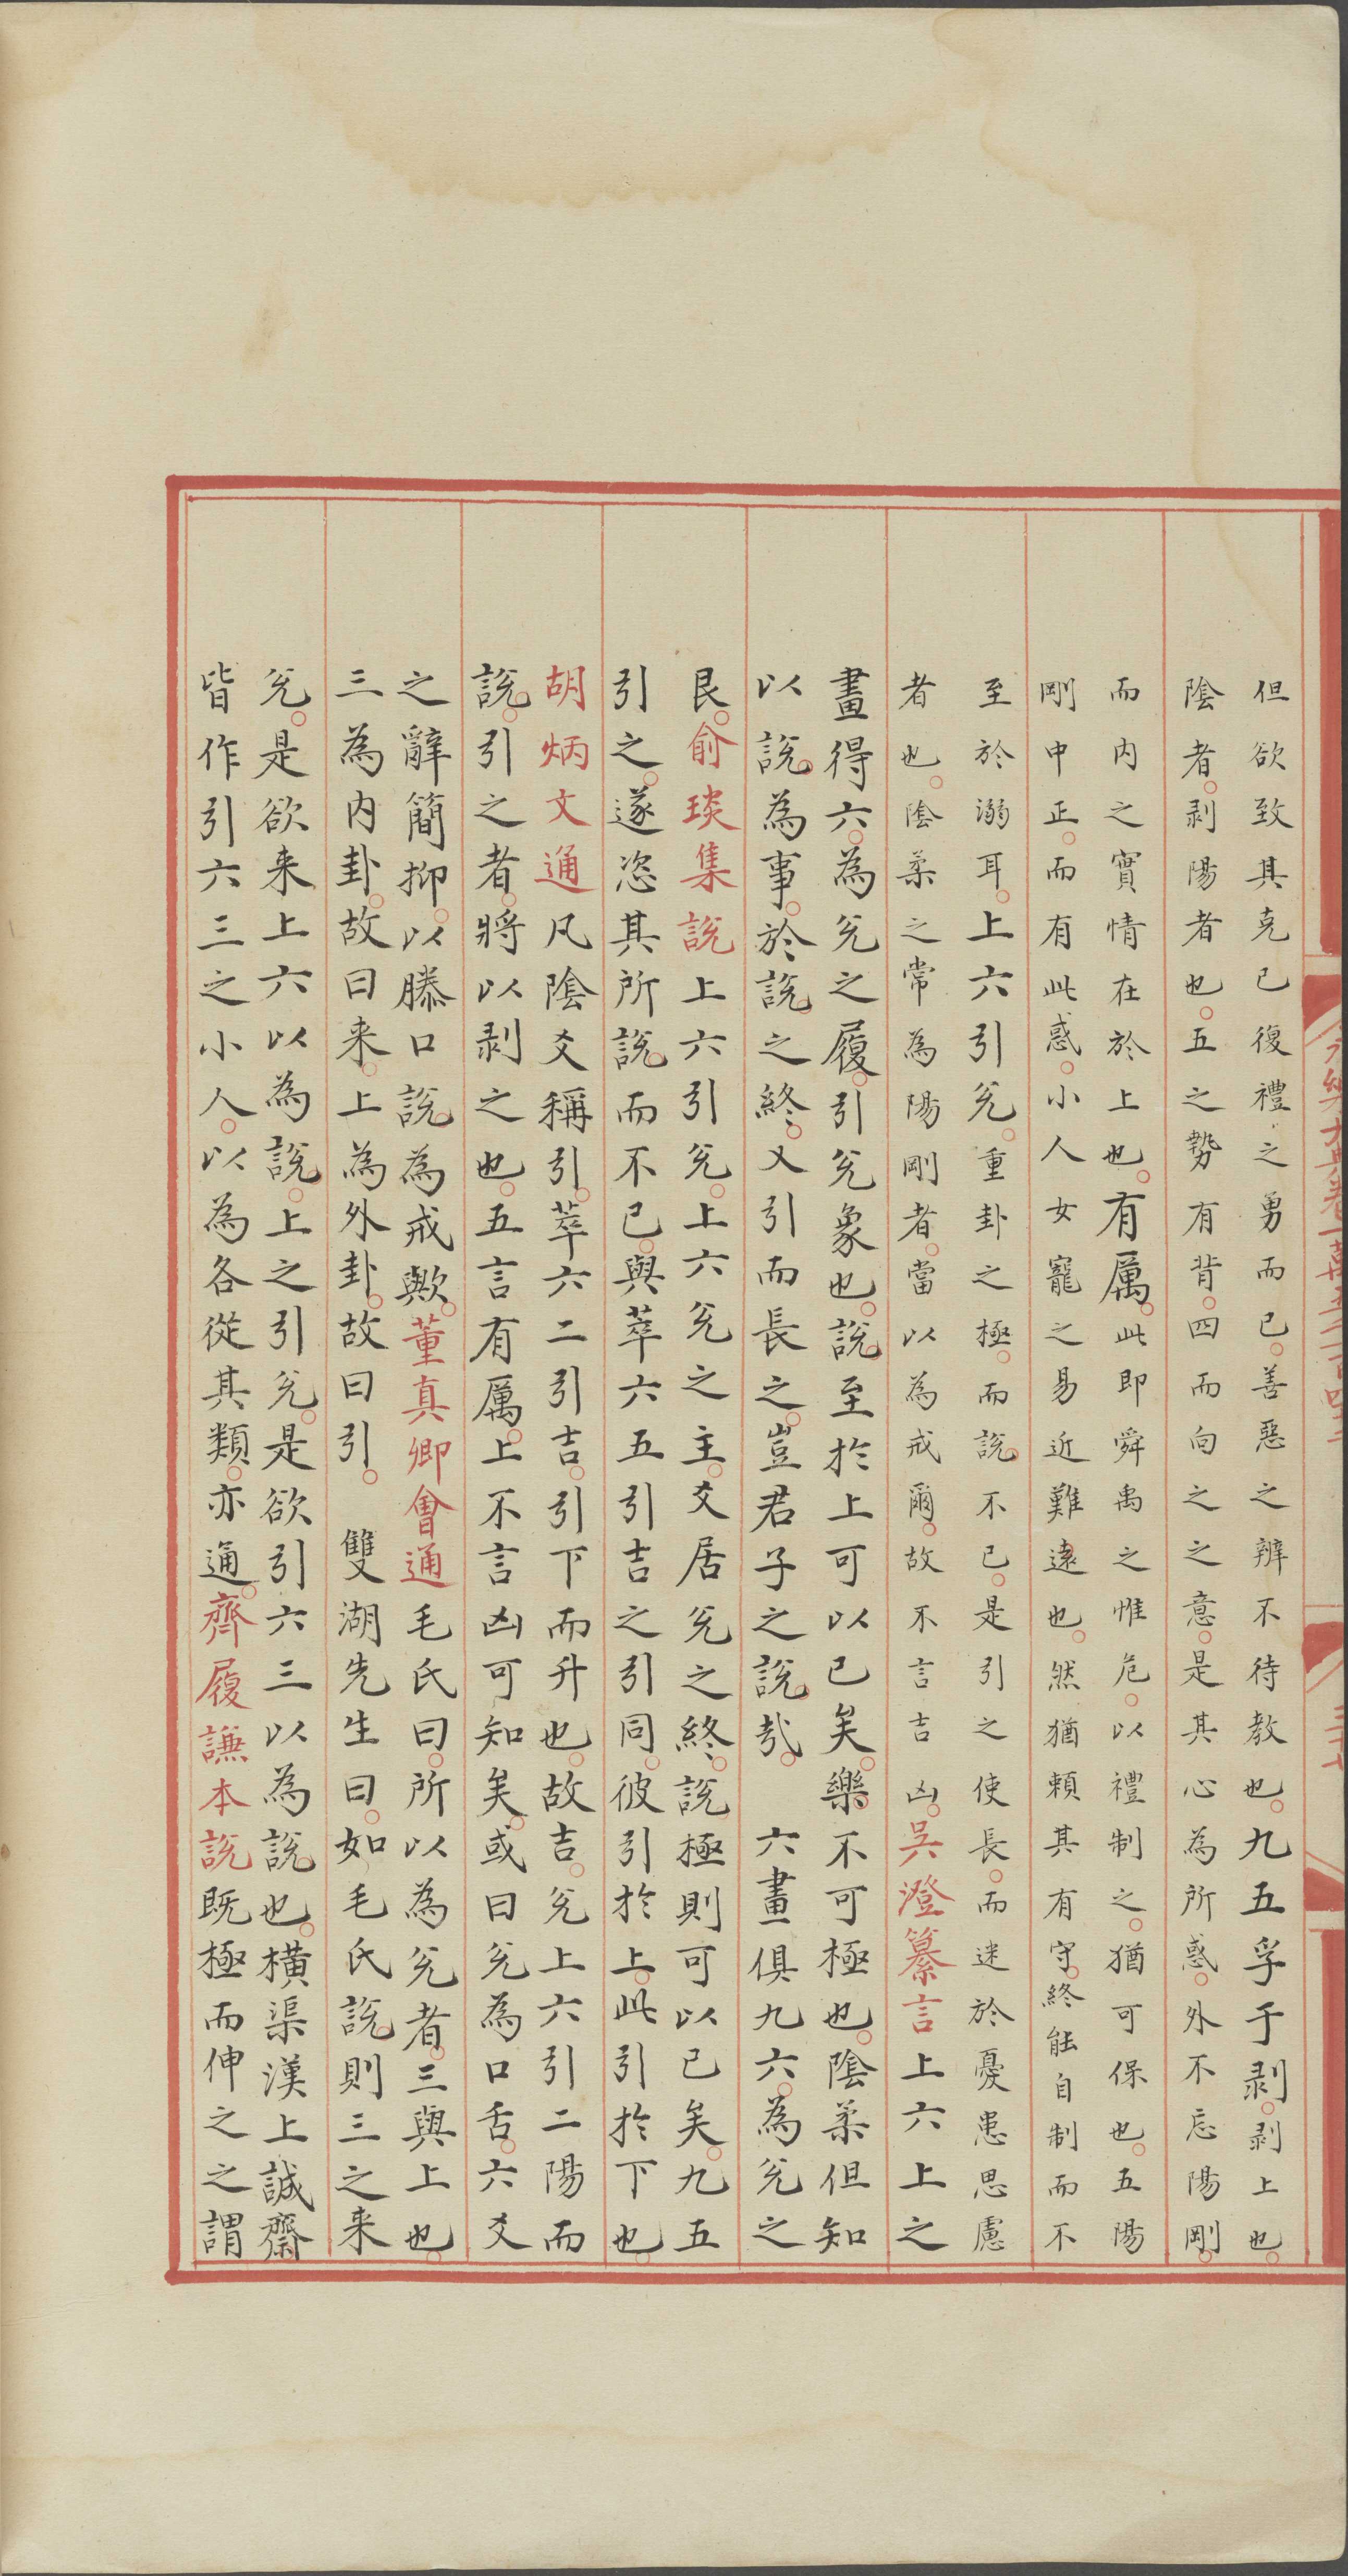 但欲致其克已復禮之勇而已善惡之辨不待教也九五孚于剥剥上也
陰者剥陽者也五之勢有背四而向之之意是其心為所惑外不忘陽剛
而内之實情在於上也有厲此即舜禹之惟危以禮制之猶可保也五陽
剛中正而有此惑小人女寵之易近難遠也然猶賴其有守終能自制而不
至於溺耳上六引兊重卦之極而說不已是引之使長而迷於憂患思慮
者也陰柔之常為陽剛者當以為戒爾故不言吉凶吳澄纂言上六上之
畫得六為兊之履引兊象也說至於上可以已矣樂不可極也陰柔但知
以說為事於說之終又引而長之豈君子之說哉　六畫俱九六為兊之
艮俞琰集說上六引兊上六兊之主爻居兊之終說極則可以已矣九五
引之遂恣其所說而不已與萃六五引吉之引同彼引於上此引於下也
胡炳文通凡陰爻稱引萃六二引吉引下而升也故吉兊上六引二陽而
說引之者將以剥之也五言有厲上不言凶可知矣或曰兊為口舌六爻
之辭簡抑以滕口說為戒歟董真卿會通毛氏曰所以為兊者三與上也
三為内卦故曰来上為外卦故曰引　雙湖先生曰如毛氏說則三之来
兊是欲来上六以為說上之引兊是欲引六三以為說也橫渠漢上誠齋
皆作引六三之小人以為各從其類亦通齊履謙本說既極而伸之之謂